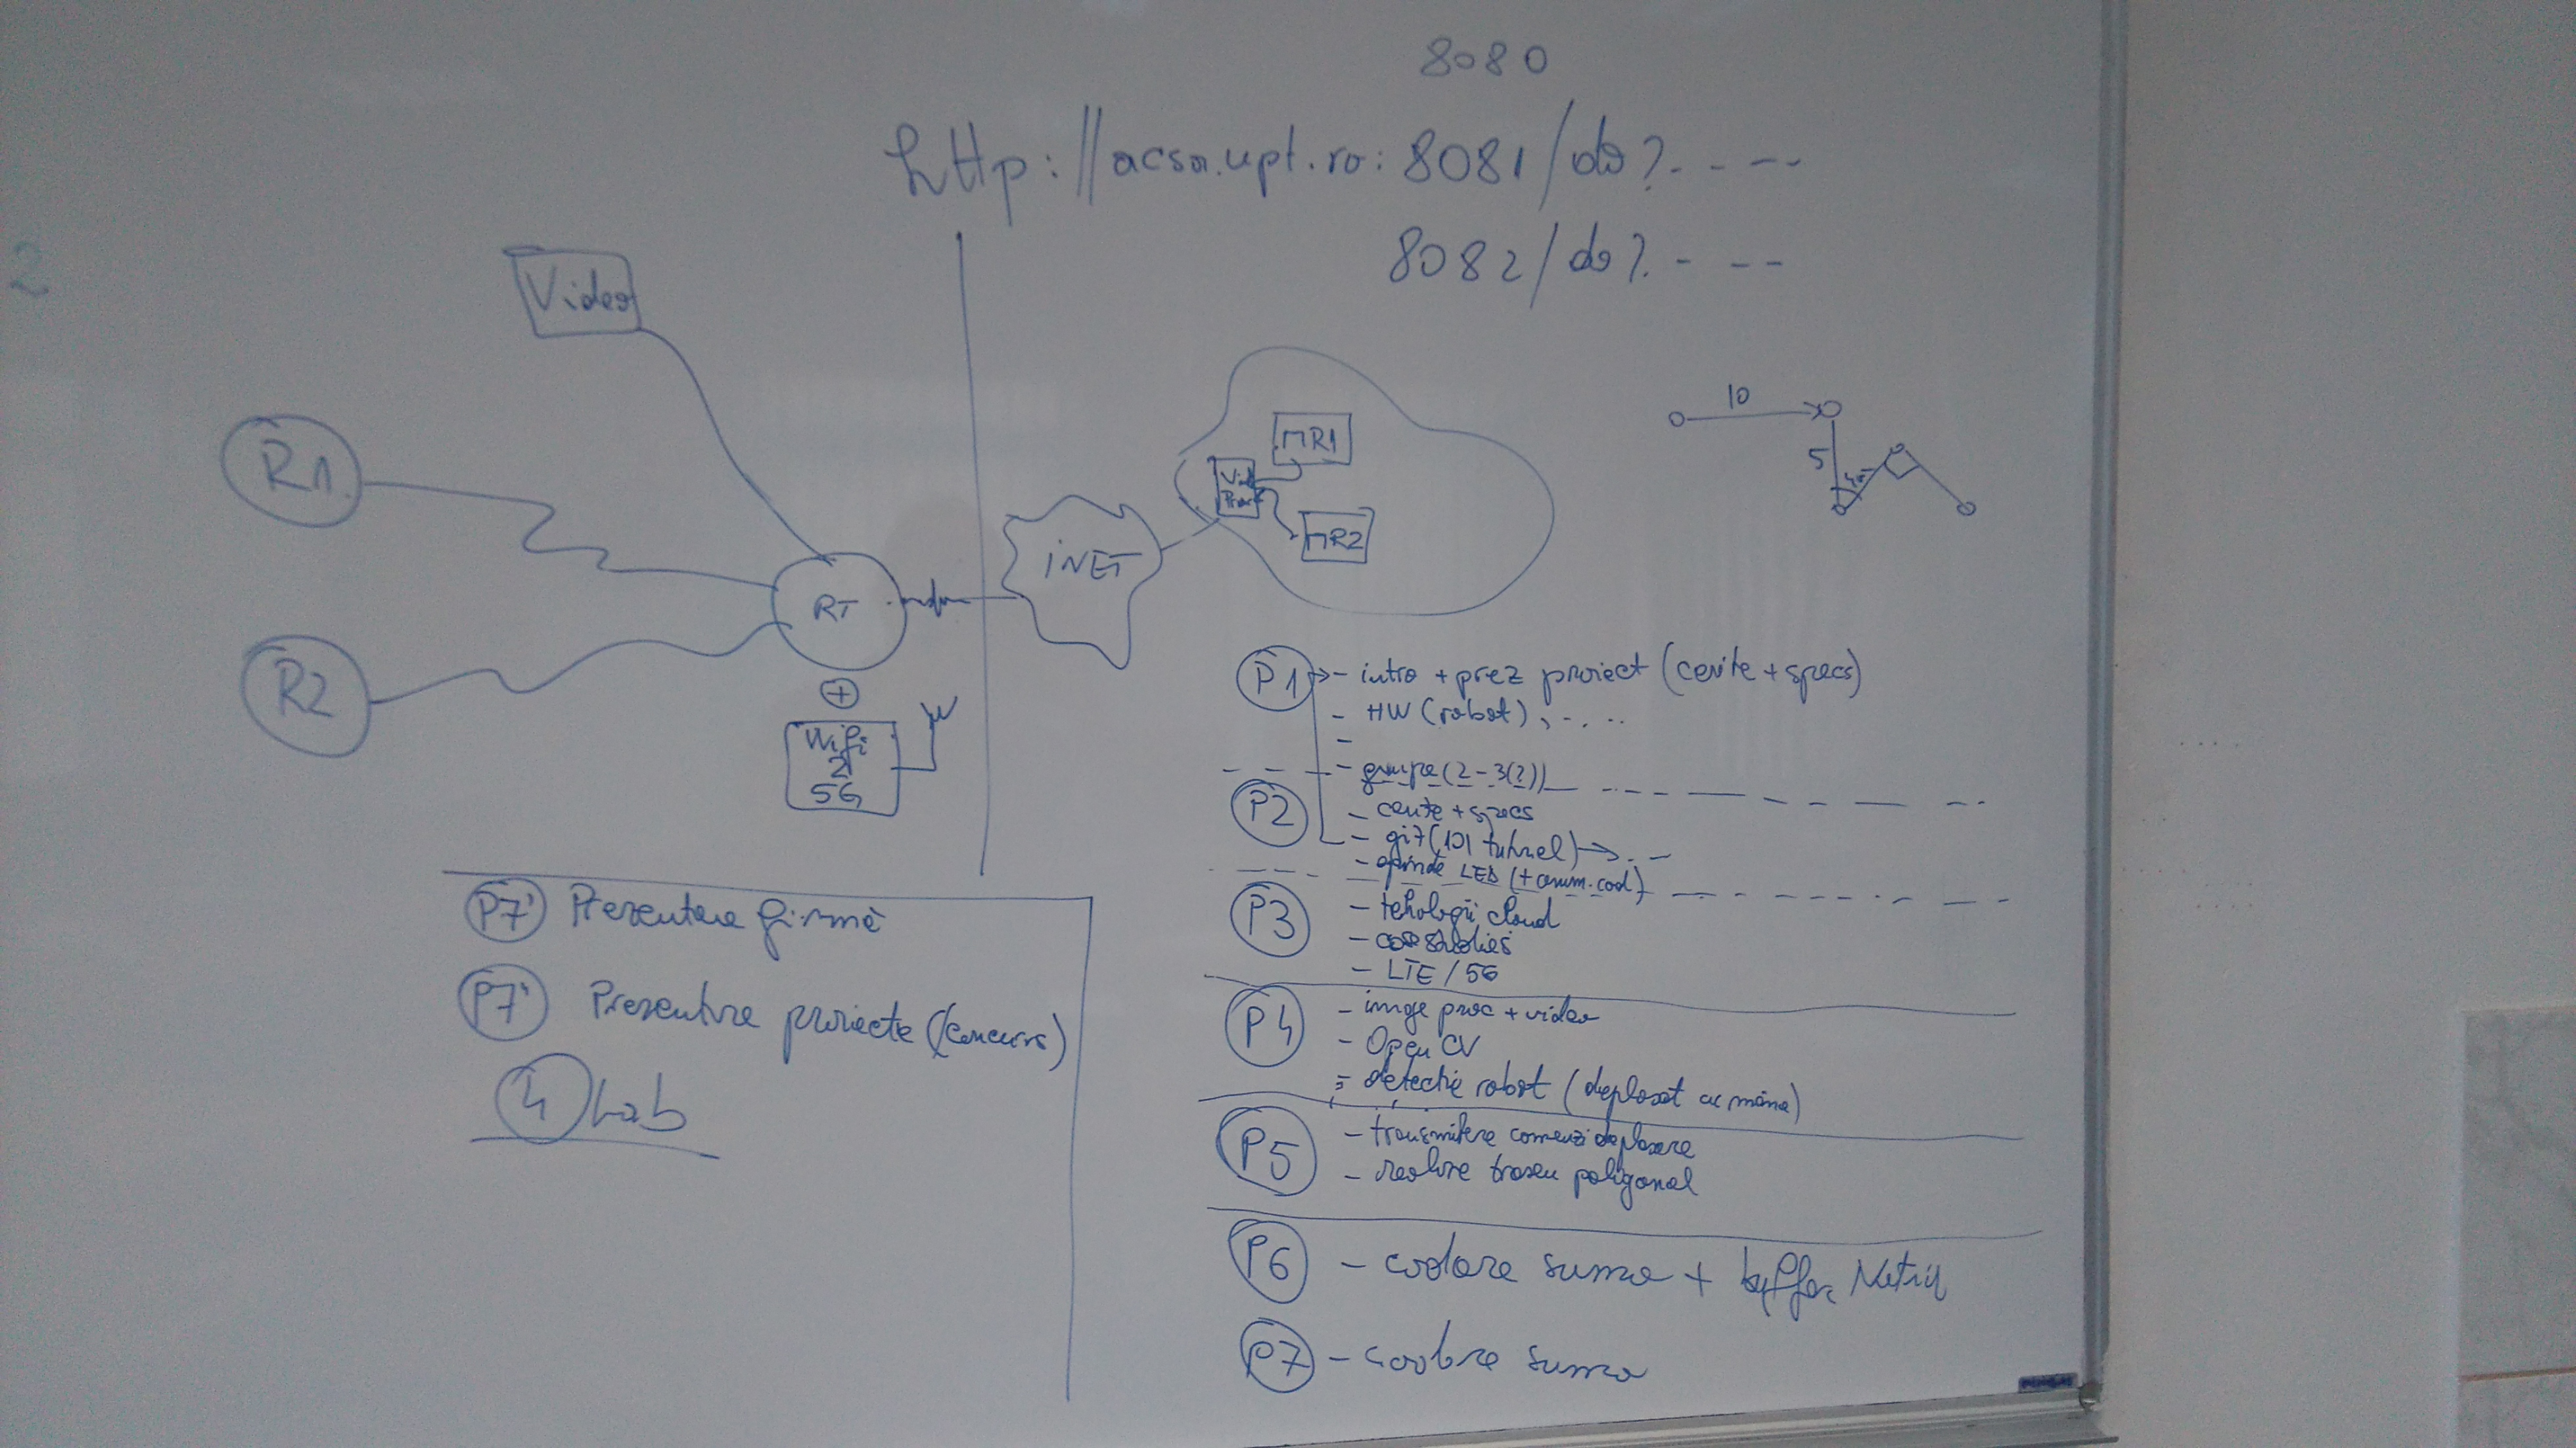 8080
http://acsa.upt.ro:8081/do?- - --
8082/do?- - --
2
Video
R1
R2
RT
+
Wifi
5G
iNET
MR1
MR2
10
5
P1 - intro + prez proiect (cerințe + specs)
- HW (robot), -. ..
-
- grupe (2-3(?))
P2 - cerințe + specs
- git (101 tunnel) → . -
- aprinde LED (+ comm. cod)
P3 - tehologii cloud
- case studies
- LTE / 5G
P4 - image proc + video
- Open CV
- detecție robot (deplasat cu mâna)
P5 - transmitere comenzi deplasare
- rezolvare traseu poligonal
P6 - codare sumo + buffer
P7 - codare sumo
P7' Prezentare firmă
P7' Prezentare proiecte (concurs)
4 Lab